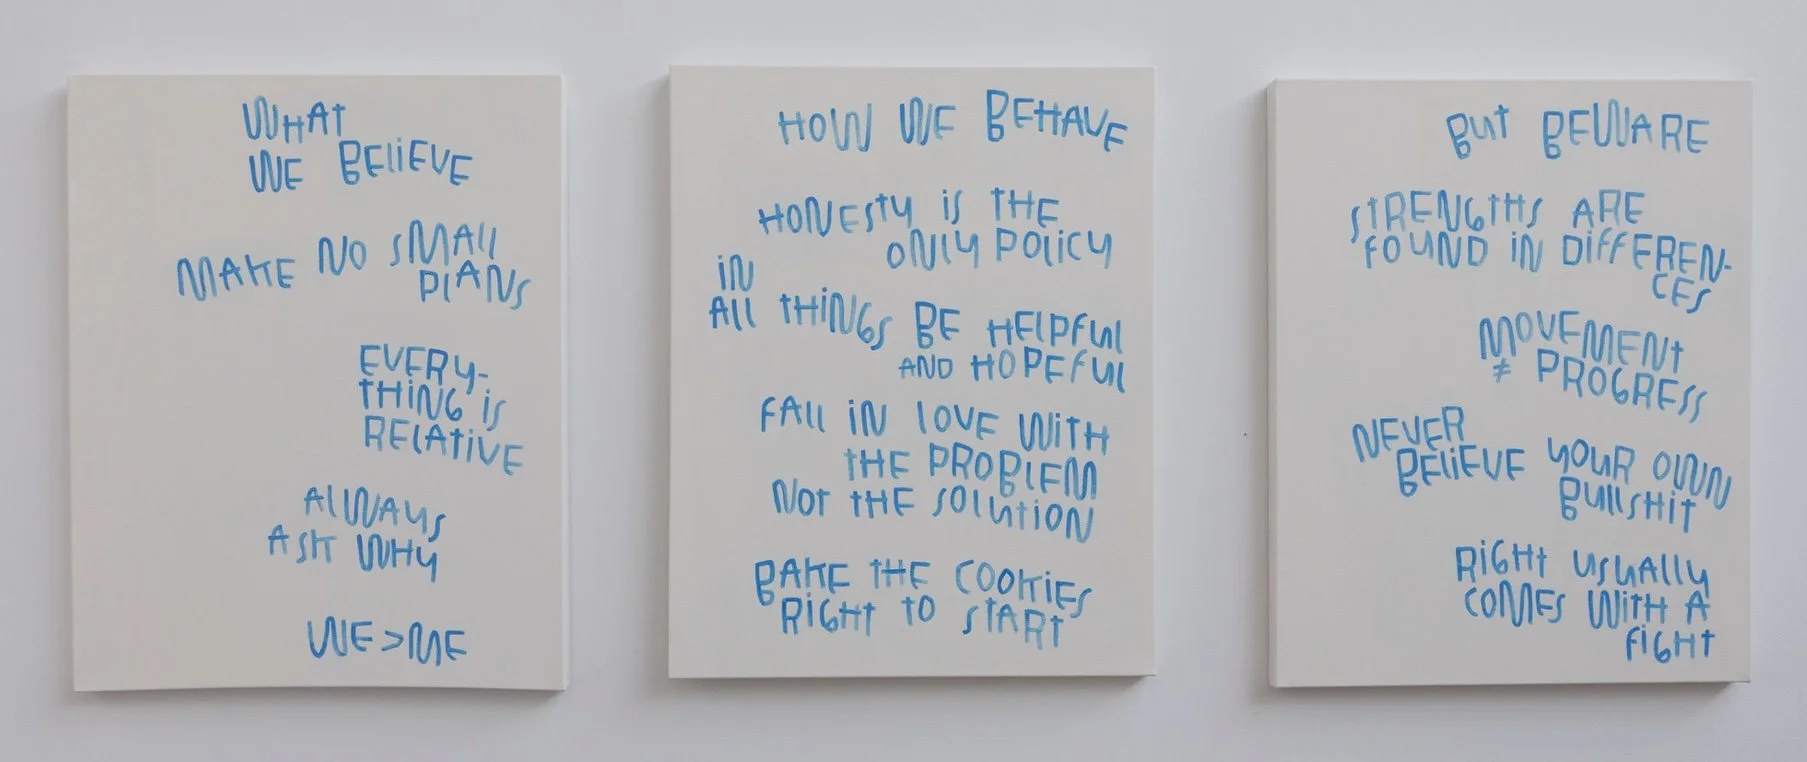 WHAT
WE BELiEVE
MAKE NO SMALL
PLANS
EVERY-
THiNG iS
RELATiVE
ALWAYS
ASK WHY
WE>ME
HOW WE BEHAVE
HONESTY iS THE
ONLY POLiCY
iN
ALL THiNGS BE HELPFUL
AND HOPEFUL
FALL iN LOVE WiTH
THE PROBLEM
NOT THE SOLUTiON
BAKE THE COOKiES
RiGHT TO START
BUT BEWARE
STRENGTHS ARE
FOUND iN DiFFEREN-
CES
MOVEMENT
≠ PROGRESS
NEVER
BELiEVE YOUR OWN
BULLSHiT
RiGHT USUALLY
COMES WiTH A
FiGHT